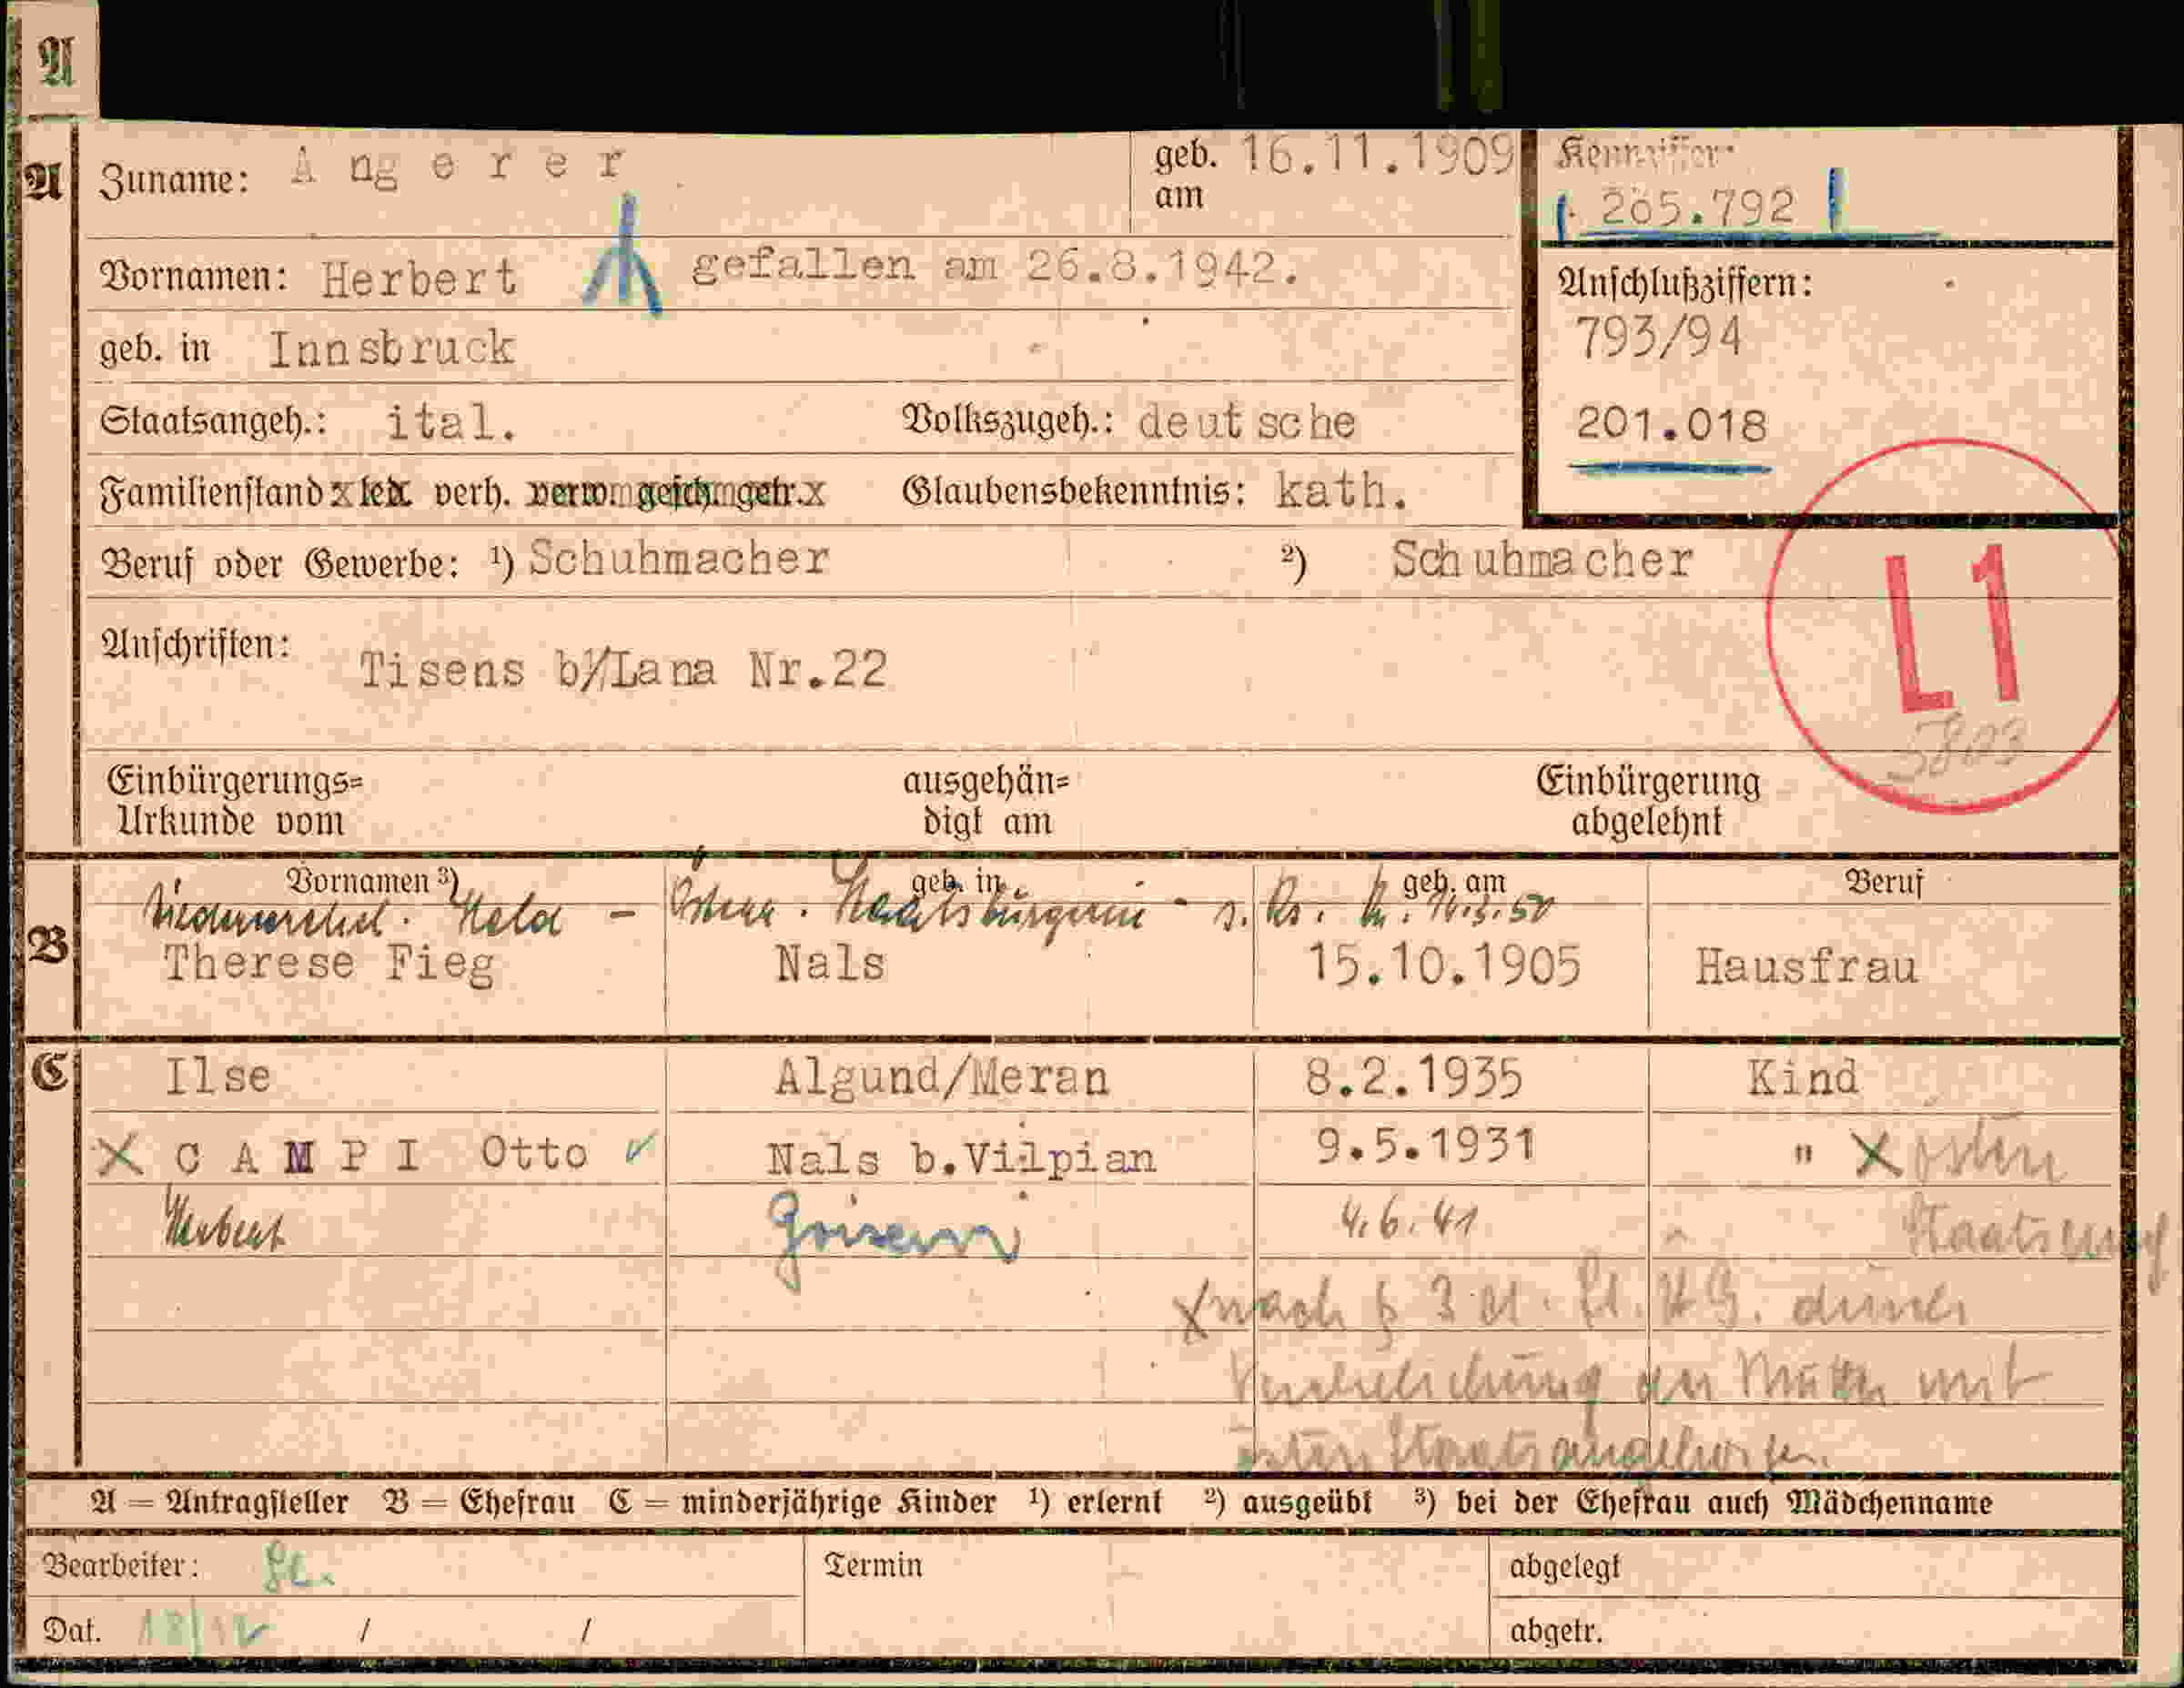 A
A Zuname: Angerer geb. am 16.11.1909 Kennziffer:
265.792
Vornamen: Herbert gefallen am 26.8.1942. Anschlußziffern:
793/94
geb. in Innsbruck
Staatsangeh.: ital. Volkszugeh.: deutsche 201.018
Familienstand led. verh. verw. gesch. getr. Glaubensbekenntnis: kath.
Beruf oder Gewerbe: ¹) Schuhmacher ²) Schuhmacher
L1
Anschriften: Tisens b/Lana Nr.22
5803
Einbürgerungs= Urkunde vom ausgehän= digt am Einbürgerung abgelehnt
B Vornamen ³) geb. in geb. am Beruf
Held - Österr. Staatsbürgerin
Therese Fieg Nals 15.10.1905 Hausfrau
C Ilse Algund/Meran 8.2.1935 Kind
X CAMPI Otto ✓ Nals b.Vilpian 9.5.1931 " X österr
Herbert Goisern 4.6.41
X nach § 3 durch
Verehelichung der Mutter mit
österr Staatsangehörigen.
A = Antragsteller B = Ehefrau C = minderjährige Kinder ¹) erlernt ²) ausgeübt ³) bei der Ehefrau auch Mädchenname
Bearbeiter: Termin abgelegt
Dat. / / abgetr.